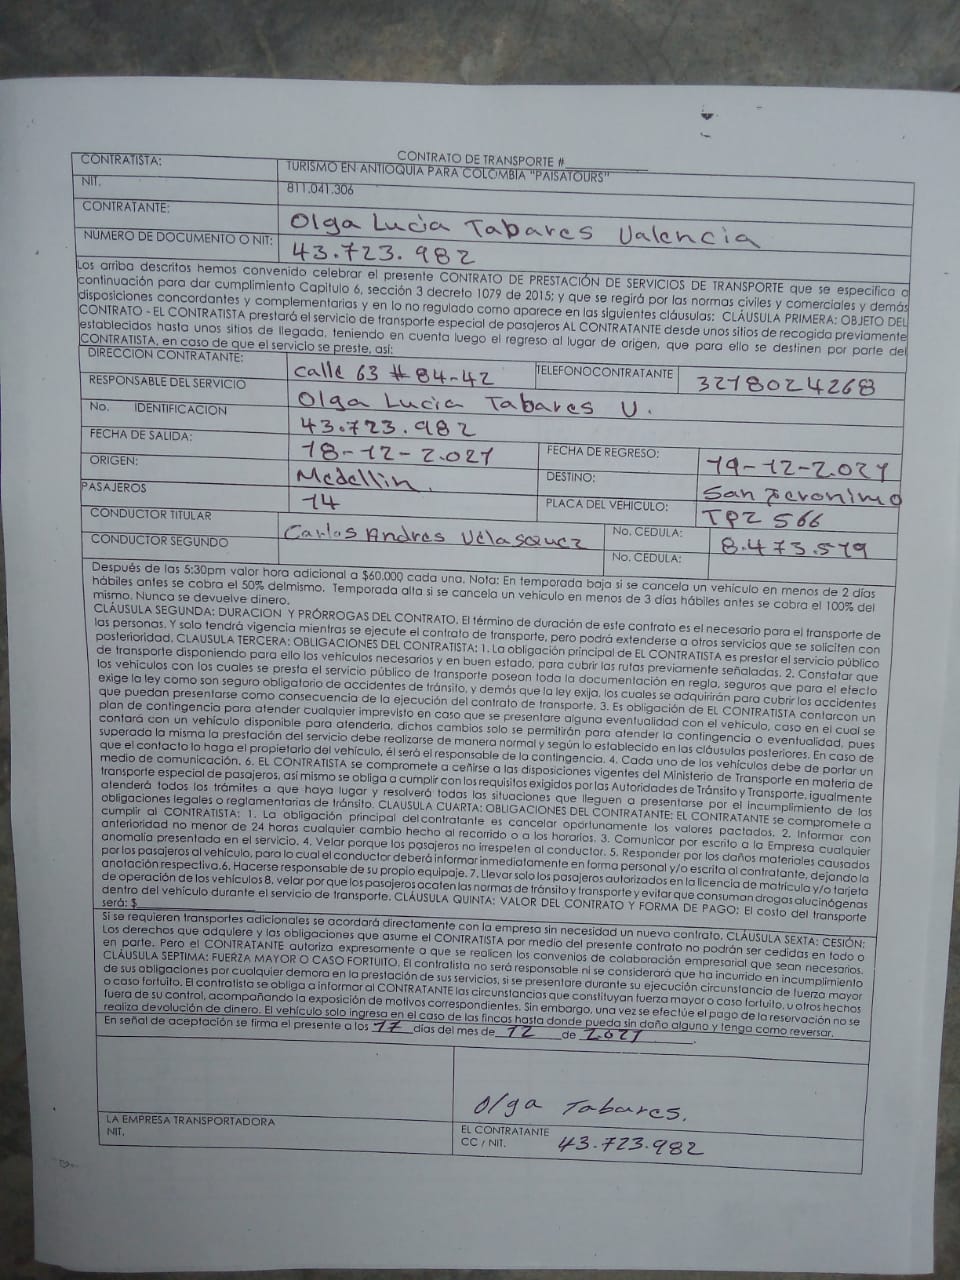 CONTRATO DE TRANSPORTE #
CONTRATISTA: TURISMO EN ANTIOQUIA PARA COLOMBIA "PAISATOURS"
NIT. 811.041.306
CONTRATANTE: Olga Lucia Tabares Valencia
NUMERO DE DOCUMENTO O NIT: 43.723.982
Los arriba descritos hemos convenido celebrar el presente CONTRATO DE PRESTACIÓN DE SERVICIOS DE TRANSPORTE que se especifica a
continuación para dar cumplimiento Capitulo 6, sección 3 decreto 1079 de 2015; y que se regirá por las normas civiles y comerciales y demás
disposiciones concordantes y complementarias y en lo no regulado como aparece en las siguientes cláusulas: CLÁUSULA PRIMERA: OBJETO DEL
CONTRATO - EL CONTRATISTA prestará el servicio de transporte especial de pasajeros AL CONTRATANTE desde unos sitios de recogida previamente
establecidos hasta unos sitios de llegada, teniendo en cuenta luego el regreso al lugar de origen, que para ello se destinen por parte del
CONTRATISTA, en caso de que el servicio se preste, así:
DIRECCION CONTRATANTE: calle 63 # 84-42 TELEFONOCONTRATANTE 3218024268
RESPONSABLE DEL SERVICIO Olga Lucia Tabares V.
No. IDENTIFICACION 43.723.982
FECHA DE SALIDA: 18-12-2.021 FECHA DE REGRESO: 19-12-2.021
ORIGEN: Medellin. DESTINO: San Jeronimo
PASAJEROS 14 PLACA DEL VEHICULO: TPZ 566
CONDUCTOR TITULAR Carlos Andres Velasquez No. CEDULA: 8.473.519
CONDUCTOR SEGUNDO No. CEDULA:
Después de las 5:30pm valor hora adicional a $60.000 cada una. Nota: En temporada baja si se cancela un vehículo en menos de 2 días
hábiles antes se cobra el 50% delmismo. Temporada alta si se cancela un vehículo en menos de 3 días hábiles antes se cobra el 100% del
mismo. Nunca se devuelve dinero.
CLÁUSULA SEGUNDA: DURACION Y PRÓRROGAS DEL CONTRATO. El término de duración de este contrato es el necesario para el transporte de
las personas. Y solo tendrá vigencia mientras se ejecute el contrato de transporte, pero podrá extenderse a otros servicios que se soliciten con
posterioridad. CLAUSULA TERCERA: OBLIGACIONES DEL CONTRATISTA: 1. La obligación principal de EL CONTRATISTA es prestar el servicio público
de transporte disponiendo para ello los vehículos necesarios y en buen estado, para cubrir las rutas previamente señaladas. 2. Constatar que
los vehículos con los cuales se presta el servicio público de transporte posean toda la documentación en regla, seguros que para el efecto
exige la ley como son seguro obligatorio de accidentes de tránsito, y demás que la ley exija, los cuales se adquirirán para cubrir los accidentes
que puedan presentarse como consecuencia de la ejecución del contrato de transporte. 3. Es obligación de EL CONTRATISTA contarcon un
plan de contingencia para atender cualquier imprevisto en caso que se presentare alguna eventualidad con el vehículo, caso en el cual se
contará con un vehículo disponible para atenderla, dichos cambios solo se permitirán para atender la contingencia o eventualidad, pues
superada la misma la prestación del servicio debe realizarse de manera normal y según lo establecido en las cláusulas posteriores. En caso de
que el contacto lo haga el propietario del vehículo, él será el responsable de la contingencia. 4. Cada uno de los vehículos debe de portar un
medio de comunicación. 6. EL CONTRATISTA se compromete a ceñirse a las disposiciones vigentes del Ministerio de Transporte en materia de
transporte especial de pasajeros, así mismo se obliga a cumplir con los requisitos exigidos por las Autoridades de Tránsito y Transporte, igualmente
atenderá todos los trámites a que haya lugar y resolverá todas las situaciones que lleguen a presentarse por el incumplimiento de las
obligaciones legales o reglamentarias de tránsito. CLAUSULA CUARTA: OBLIGACIONES DEL CONTRATANTE: EL CONTRATANTE se compromete a
cumplir al CONTRATISTA: 1. La obligación principal del contratante es cancelar oportunamente los valores pactados. 2. Informar con
anterioridad no menor de 24 horas cualquier cambio hecho al recorrido o a los horarios. 3. Comunicar por escrito a la Empresa cualquier
anomalía presentada en el servicio. 4. Velar porque los pasajeros no irrespeten al conductor. 5. Responder por los daños materiales causados
por los pasajeros al vehículo, para lo cual el conductor deberá informar inmediatamente en forma personal y/o escrita al contratante, dejando la
anotación respectiva.6. Hacerse responsable de su propio equipaje. 7. Llevar solo los pasajeros autorizados en la licencia de matricula y/o tarjeta
de operación de los vehículos 8. velar por que los pasajeros acaten las normas de tránsito y transporte y evitar que consuman drogas alucinógenas
dentro del vehículo durante el servicio de transporte. CLÁUSULA QUINTA: VALOR DEL CONTRATO Y FORMA DE PAGO: El costo del transporte
será: $
Si se requieren transportes adicionales se acordará directamente con la empresa sin necesidad un nuevo contrato. CLÁUSULA SEXTA: CESIÓN:
Los derechos que adquiere y las obligaciones que asume el CONTRATISTA por medio del presente contrato no podrán ser cedidas en todo o
en parte. Pero el CONTRATANTE autoriza expresamente a que se realicen los convenios de colaboración empresarial que sean necesarios.
CLÁUSULA SEPTIMA: FUERZA MAYOR O CASO FORTUITO. El contratista no será responsable ni se considerará que ha incurrido en incumplimiento
de sus obligaciones por cualquier demora en la prestación de sus servicios, si se presentare durante su ejecución circunstancia de fuerza mayor
o caso fortuito. El contratista se obliga a informar al CONTRATANTE las circunstancias que constituyan fuerza mayor o caso fortuito, u otros hechos
fuera de su control, acompañando la exposición de motivos correspondientes. Sin embargo, una vez se efectúe el pago de la reservación no se
realiza devolución de dinero. El vehículo solo ingresa en el caso de las fincas hasta donde pueda sin daño alguno y tenga como reversar.
En señal de aceptación se firma el presente a los 17 días del mes de 12 de 2.021
Olga Tabares.
LA EMPRESA TRANSPORTADORA
NIT.
EL CONTRATANTE
CC / NIT. 43.723.982